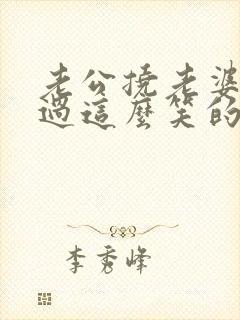 老公撓老婆
過這麼笑的
李秀峰